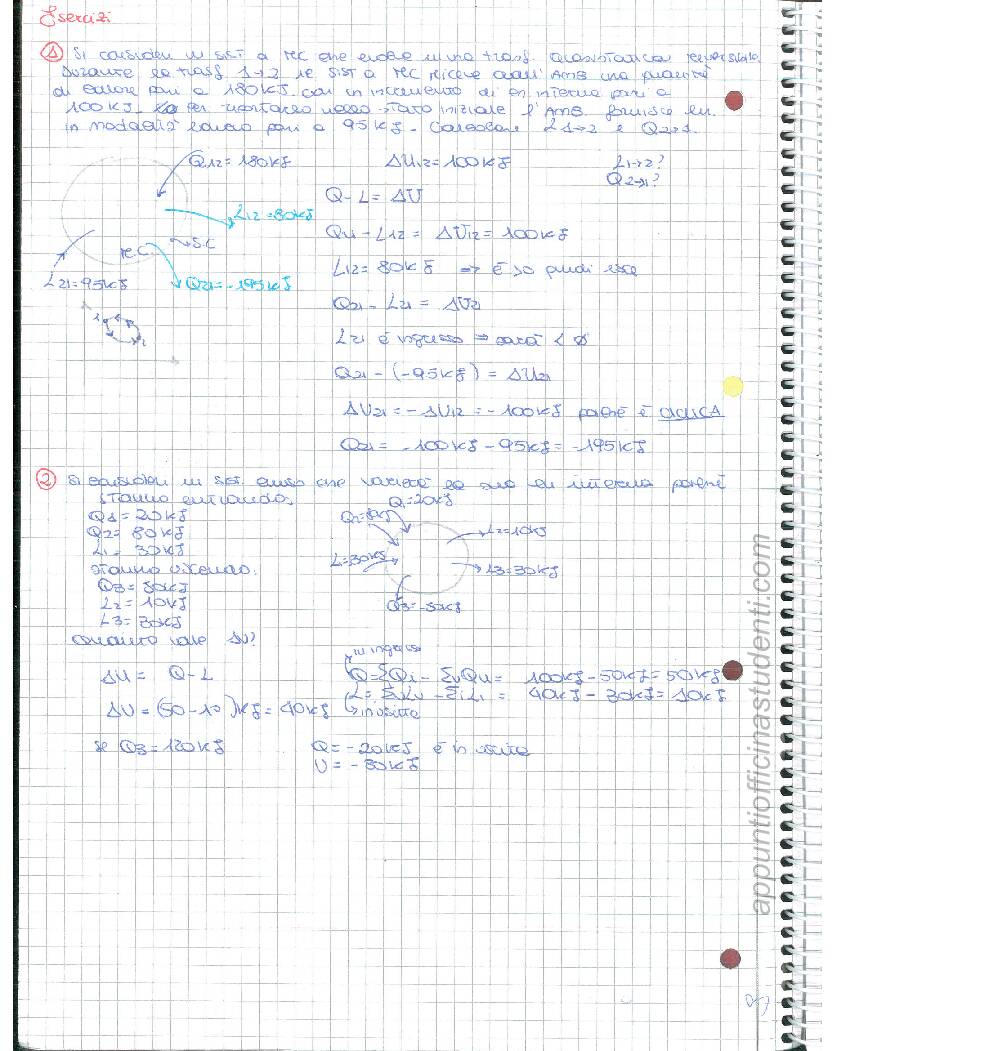 Esercizi
① Si consideri un SIST a MC che evolve in una trasf. quasistatica reversibile.
Durante la trasf 1→2 il SIST a MC riceve dall'AMB una quantità
di calore pari a 180KJ con un incremento di en interna pari a
100KJ. Per riportarlo nello stato iniziale l'AMB fornisce en.
in modalità lavoro pari a 95KJ. Calcolare L1→2 e Q2→1.
Q12=180KJ
ΔU12=100KJ
L1→2?
Q2→1?
Q-L=ΔU
L12=80KJ
- L12 = ΔU12=100KJ
M.C.
S.C
L12=80KJ => è so quindi esce
L21=95KJ
Q21=-195KJ
Q21-L21= ΔU21
1
2
L21 è ingresso => sarà < Ø
Q21-(-95KJ)=ΔU21
ΔU21=-ΔU12=-100KJ perché è CICLICA
Q21= -100KJ-95KJ=-195KJ
② Si consideri un SIST. chiuso che varierà la sua en interna perché
stanno entrando:
Q1=20KJ
Q1=20KJ
Q2=80KJ
L1=30KJ
stanno uscendo:
Q3=50KJ
L2=10KJ
L3=30KJ
Quanto vale ΔU?
L2=10KJ
L=30KJ
L3=30KJ
Q3=-50KJ
in ingresso
ΔU= Q-L
Q=ΣQi-ΣuQu= 100KJ-50KJ=50KJ
L=ΣuLu-ΣiLi= 40KJ-30KJ=10KJ
ΔU=(50-10)KJ=40KJ
in uscita
se Q3=120KJ
Q=-20KJ è in uscita
U=-30KJ
appuntiofficinastudenti.com